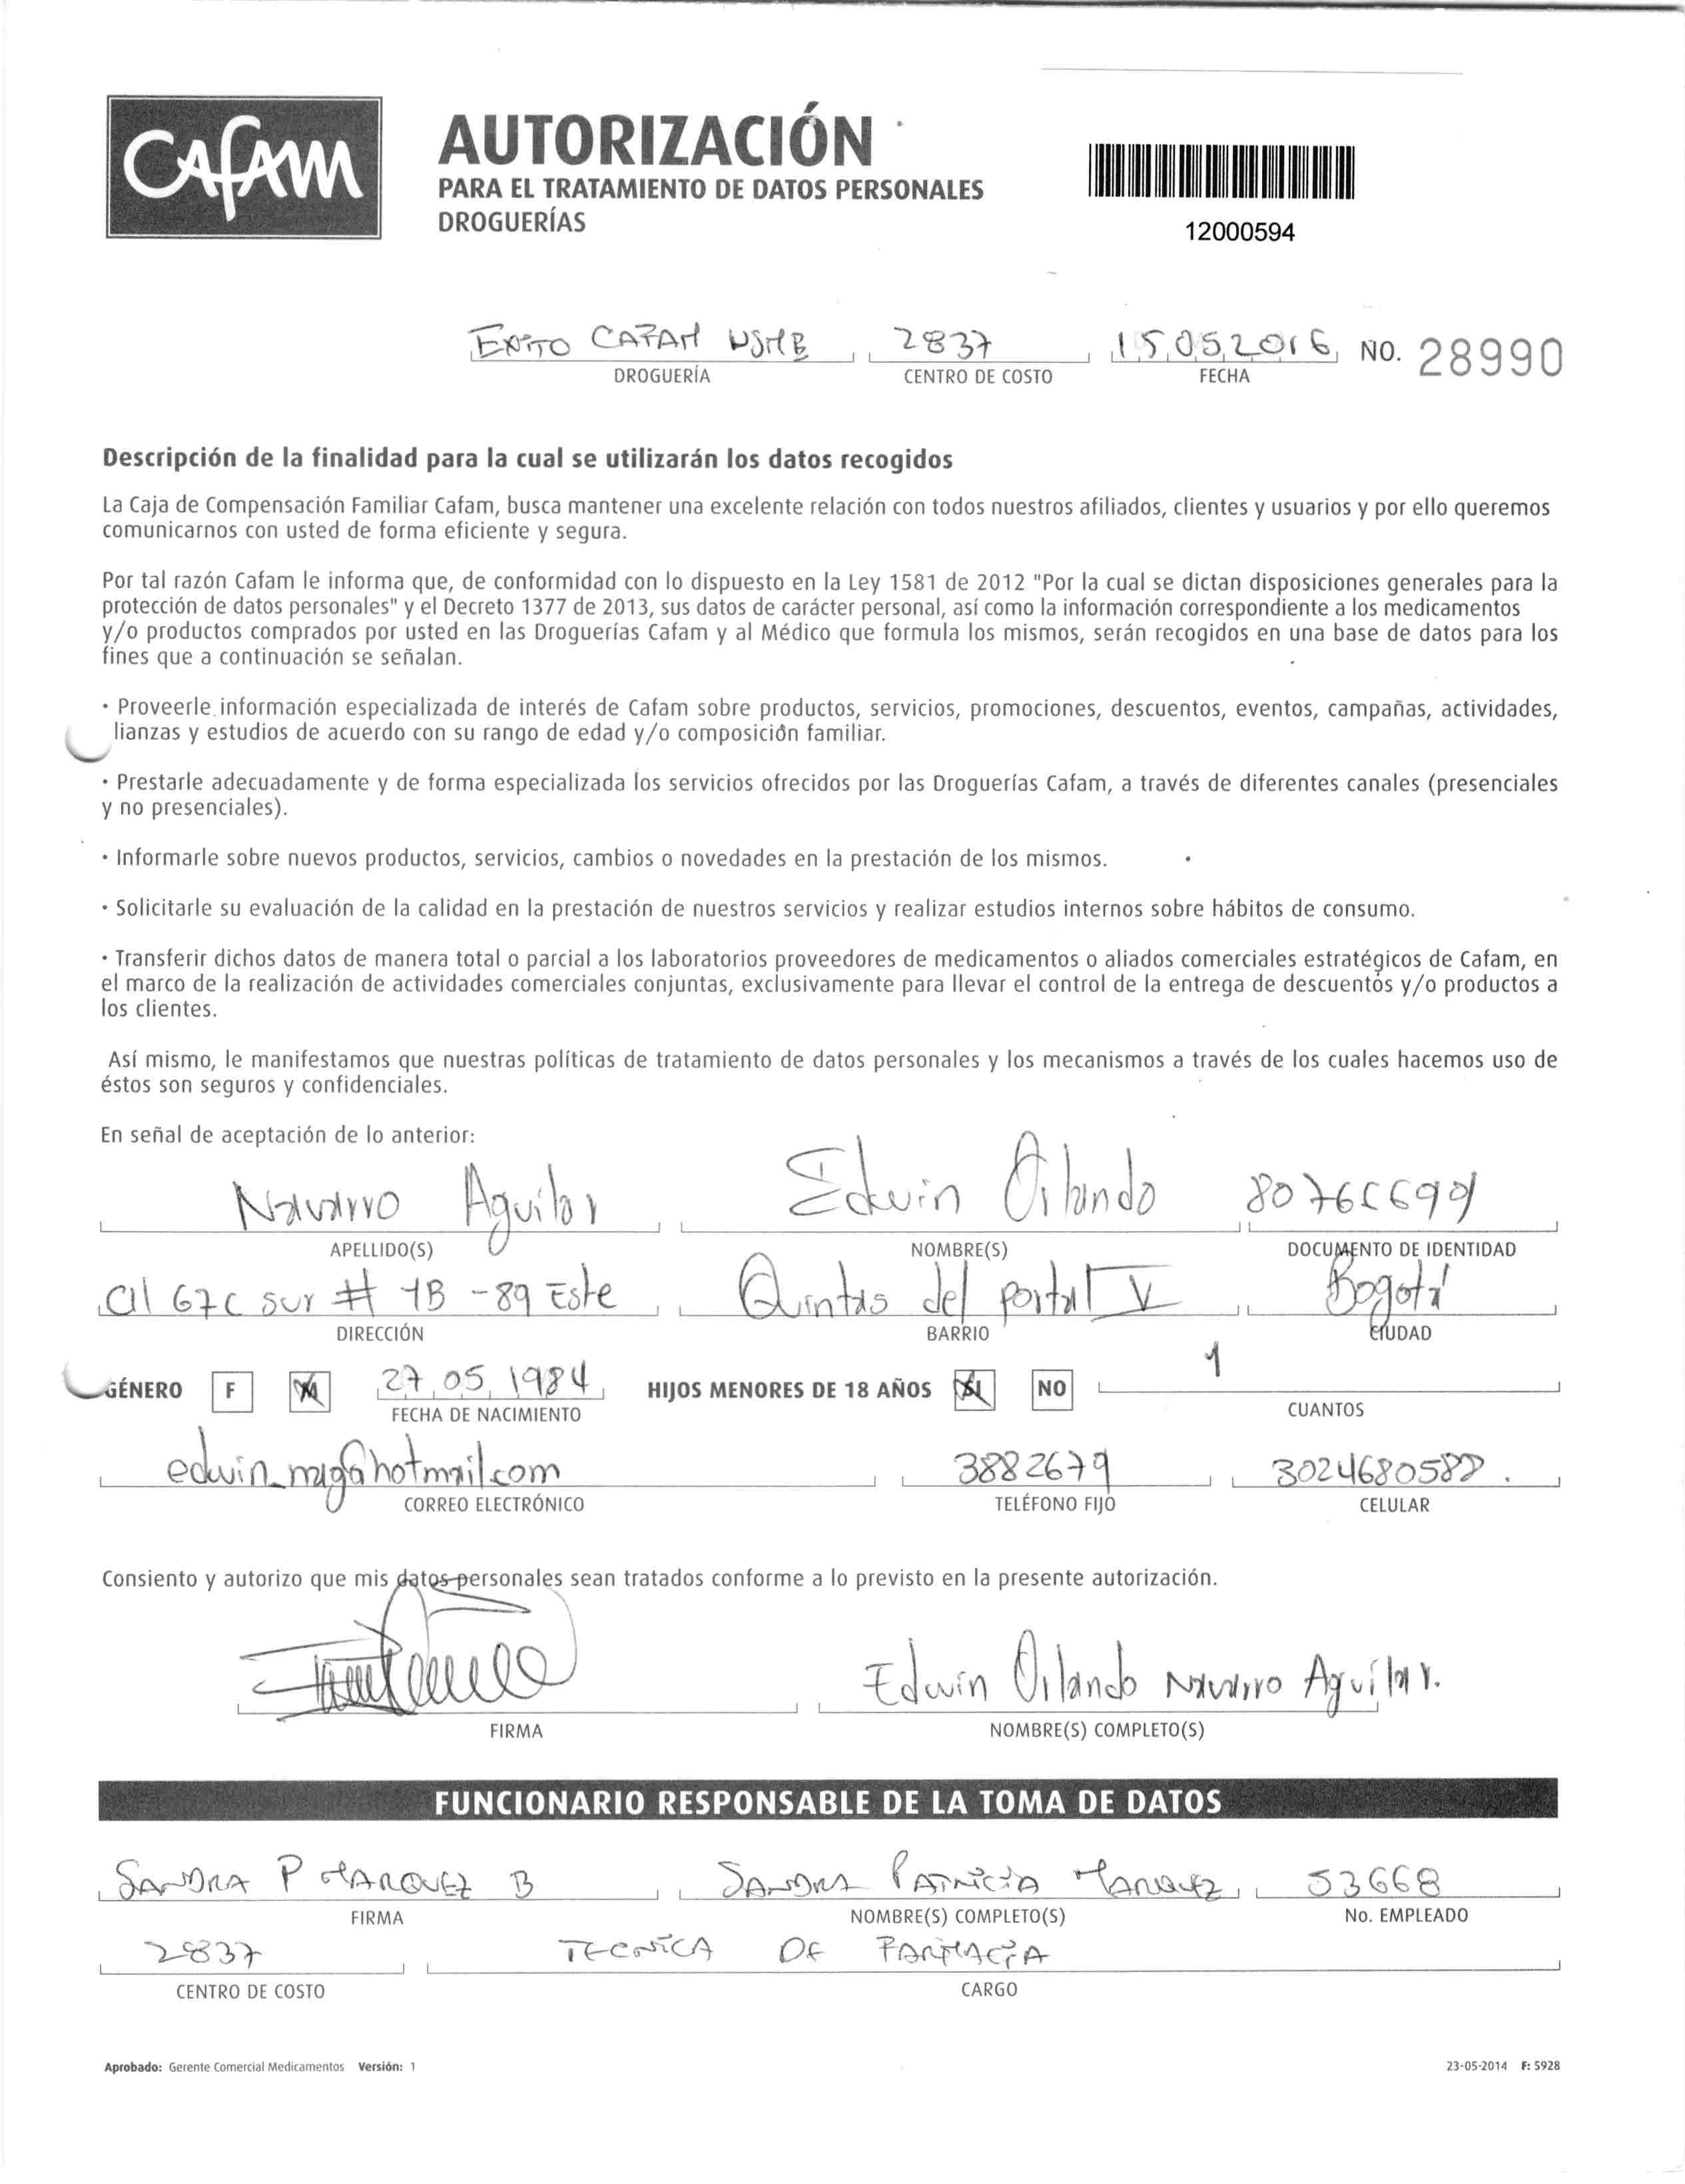 CAFAM
AUTORIZACIÓN
PARA EL TRATAMIENTO DE DATOS PERSONALES
DROGUERÍAS
12000594
EXITO CAFAM USME 2837 15 05 2016 NO. 28990
DROGUERÍA CENTRO DE COSTO FECHA
Descripción de la finalidad para la cual se utilizarán los datos recogidos
La Caja de Compensación Familiar Cafam, busca mantener una excelente relación con todos nuestros afiliados, clientes y usuarios y por ello queremos
comunicarnos con usted de forma eficiente y segura.
Por tal razón Cafam le informa que, de conformidad con lo dispuesto en la Ley 1581 de 2012 "Por la cual se dictan disposiciones generales para la
protección de datos personales" y el Decreto 1377 de 2013, sus datos de carácter personal, así como la información correspondiente a los medicamentos
y/o productos comprados por usted en las Droguerías Cafam y al Médico que formula los mismos, serán recogidos en una base de datos para los
fines que a continuación se señalan.
· Proveerle información especializada de interés de Cafam sobre productos, servicios, promociones, descuentos, eventos, campañas, actividades,
lianzas y estudios de acuerdo con su rango de edad y/o composición familiar.
· Prestarle adecuadamente y de forma especializada los servicios ofrecidos por las Droguerías Cafam, a través de diferentes canales (presenciales
y no presenciales).
· Informarle sobre nuevos productos, servicios, cambios o novedades en la prestación de los mismos.
· Solicitarle su evaluación de la calidad en la prestación de nuestros servicios y realizar estudios internos sobre hábitos de consumo.
· Transferir dichos datos de manera total o parcial a los laboratorios proveedores de medicamentos o aliados comerciales estratégicos de Cafam, en
el marco de la realización de actividades comerciales conjuntas, exclusivamente para llevar el control de la entrega de descuentos y/o productos a
los clientes.
Así mismo, le manifestamos que nuestras políticas de tratamiento de datos personales y los mecanismos a través de los cuales hacemos uso de
éstos son seguros y confidenciales.
En señal de aceptación de lo anterior:
Navarro Aguilar Edwin Orlando
APELLIDO(S) NOMBRE(S) DOCUMENTO DE IDENTIDAD
Cll 67C sur # 1B - 89 Este Quintas del portal V Bogotá
DIRECCIÓN BARRIO CIUDAD
GÉNERO F M 27 05 1984 HIJOS MENORES DE 18 AÑOS SI NO 1
FECHA DE NACIMIENTO CUANTOS
3882679
CORREO ELECTRÓNICO TELÉFONO FIJO CELULAR
Consiento y autorizo que mis datos personales sean tratados conforme a lo previsto en la presente autorización.
Edwin Orlando Navarro Aguilar.
FIRMA NOMBRE(S) COMPLETO(S)
FUNCIONARIO RESPONSABLE DE LA TOMA DE DATOS
SANDRA P MARQUEZ B SANDRA PATRICIA MARQUEZ 53668
FIRMA NOMBRE(S) COMPLETO(S) No. EMPLEADO
2837 TECNICA DE FARMACIA
CENTRO DE COSTO CARGO
Aprobado: Gerente Comercial Medicamentos Versión: 1 23-05-2014 F: 5928